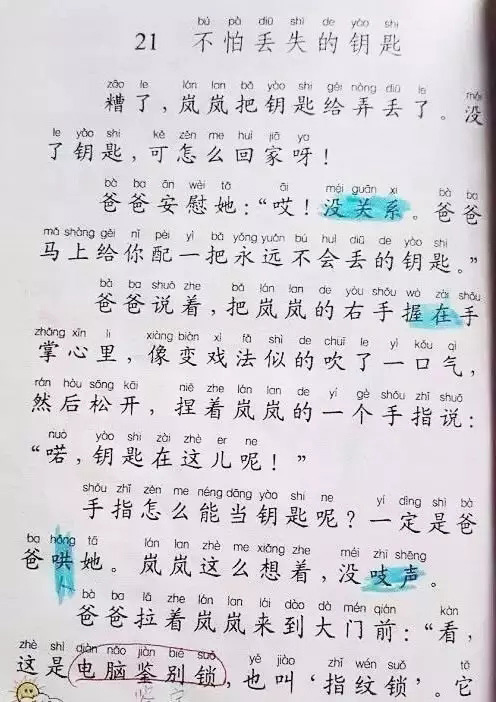 bú pà diū shī de yào shi
21 不怕丢失的钥匙
zāo le lán lan bǎ yào shi gěi nòng diū le méi
糟了，岚岚把钥匙给弄丢了。没
le yào shi kě zěn me huí jiā ya
了钥匙，可怎么回家呀！
bà ba ān wèi tā āi méi guān xi bà ba
爸爸安慰她：“哎！没关系。爸爸
mǎ shàng gěi nǐ pèi yì bǎ yǒng yuǎn bú huì diū de yào shi
马上给你配一把永远不会丢的钥匙。”
bà ba shuō zhe bǎ lán lan de yòu shǒu wò zài shǒu
爸爸说着，把岚岚的右手握在手
zhǎng xīn li xiàng biàn xì fǎ shì de chuī le yì kǒu qì
掌心里，像变戏法似的吹了一口气，
rán hòu sōng kāi niē zhe lán lan de yí gè shǒu zhǐ shuō
然后松开，捏着岚岚的一个手指说：
nuò yào shi zài zhè er ne
“喏，钥匙在这儿呢！”
shǒu zhǐ zěn me néng dāng yào shi ne yí dìng shì bà
手指怎么能当钥匙呢？一定是爸
ba hǒng tā lán lan zhè me xiǎng zhe méi zhī shēng
爸哄她。岚岚这么想着，没吱声。
bà ba lā zhe lán lan lái dào dà mén qián kàn
爸爸拉着岚岚来到大门前：“看，
zhè shì diàn nǎo jiàn bié suǒ yě jiào zhǐ wén suǒ tā
这是电脑鉴别锁，也叫‘指纹锁’。它